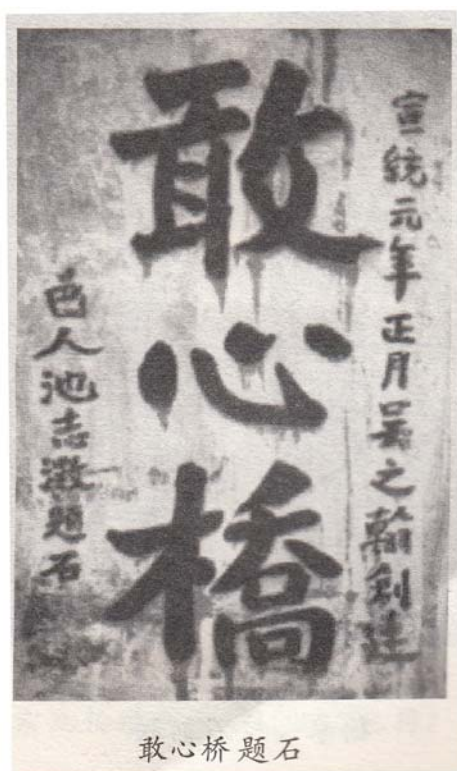 宣統元年正月吳之翰創建
敢心橋
邑人池志澂題石
敢心桥题石